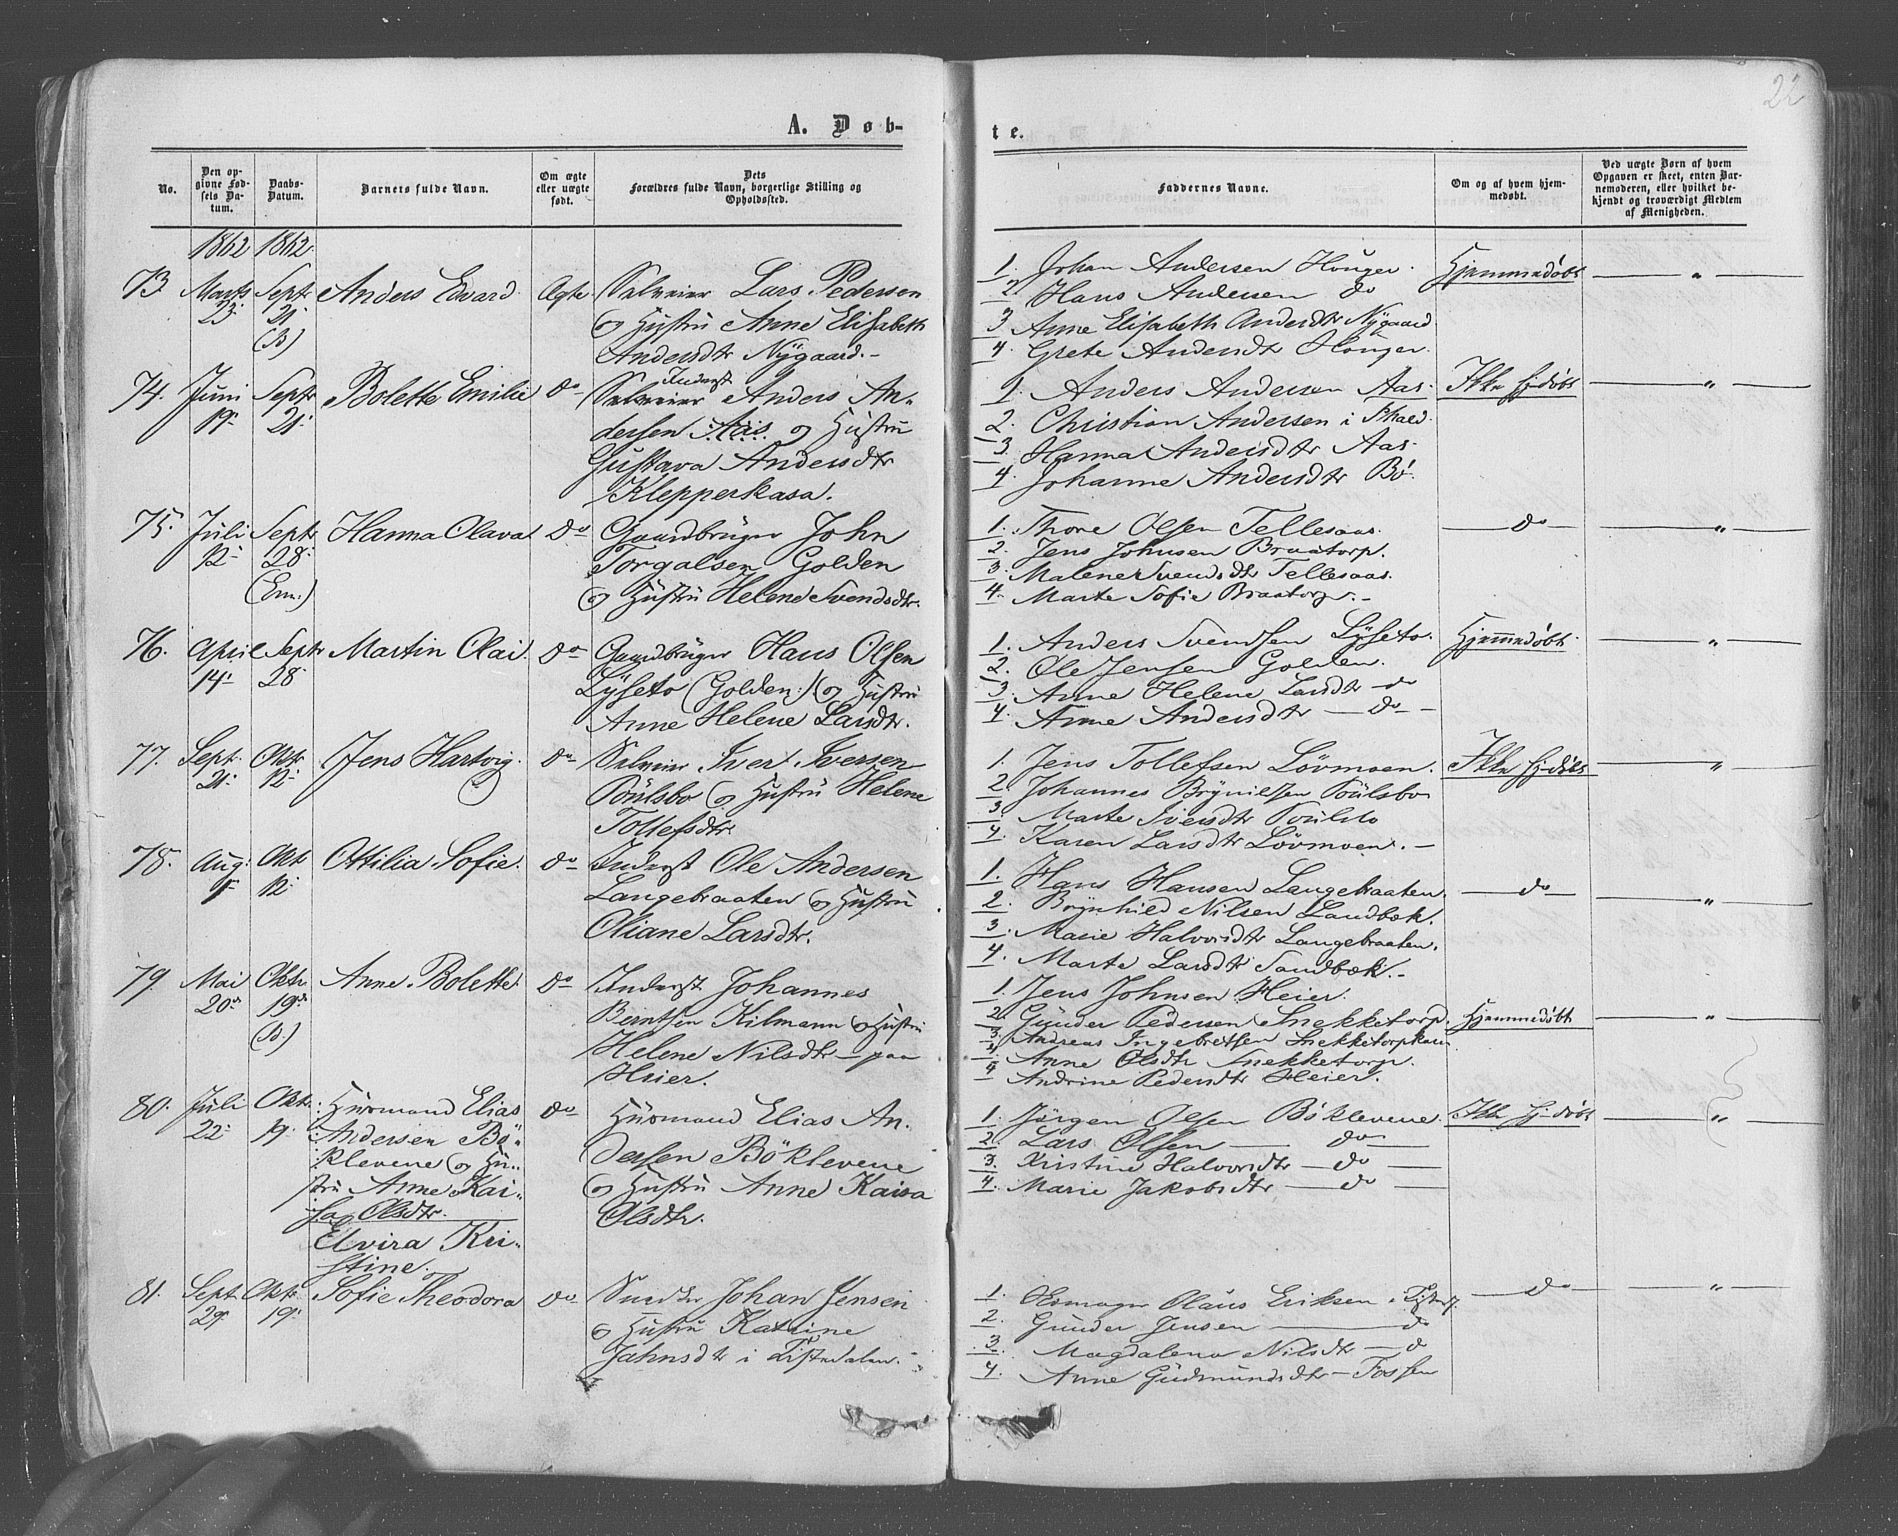 22
A. Døb-
te.
No.
Den opgivne Fødsels Datum.
Daabs-Datum.
Barnets fulde Navn.
Om ægte eller uægte født.
Dets Forældres fulde Navn, borgerlige Stilling og Opholdssted.
Faddernes Navne.
Om og af hvem hjemmedøbt.
Ved uægte Børn af hvem Opgaven er skeet, enten Barnemoderen, eller hvilket bekjendt og troværdigt Medlem af Menigheden.
1862 1862
73. Marts 23. Septr 21. (B) Anders Edvard. Ægte
Selveier Lars Pedersen
og Hustru Anne Elisabeth
Andersdtr Nygaard.-
1. Johan Andersen Houger.
2. Hans Andersen do
3. Anne Elisabeth Andersdtr Nygaard
4. Grete Andersdtr Houger.
Hjemmedøbt — " —
74. Juni 19. Septr 21. Bolette Emilie do
Inderst
Selveier Anders An-
dersen Aas. og Hustru
Gustava Andersdtr
Klepperkasa.
1. Anders Andersen Aas.
2. Christian Andersen i Skald.
3. Hanna Andersdtr Aas.
4. Johanne Andersdtr Bö.
Ikke hj-døbt — " —
75. Juli 12. Septr 28. (Em.) Hanna Olava do
Gaardbruger John
Torgalsen Golden
og Hustru Helene Svendsdtr.
1. Thore Olsen Tellesaas.
2. Jens Johnsen Braatorp.
3. Malene Svendsdtr Tellesaas.
4. Marte Sofie Braatorp.-
— do — — " —
76. April 14. Septr 28. Martin Olai. do
Gaardbruger Hans Olsen
Lyseto (Golden:) og Hustru
Anne Helene Larsdtr.
1. Anders Svendsen Lyseto.
2. Ole Jensen Golden.
3. Anne Helene Larsdtr do
4. Anne Andersdtr — do —
Hjemmedøbt — " —
77. Sept. 21. Oktr 12. Jens Hartvig. do
Selveier Iver Iversen
Poulsbo og Hustru Helene
Tollefsdtr
1. Jens Tollefsen Lövmoen.
2. Johannes Brynildsen Poulsbo
3. Marte Iversdtr Poulsbo
4. Karen Larsdtr Lövmoen.-
Ikke hj-døbt — " —
78. Aug. Okt. 12. Ottilia Sofie. do
Inderst Ole Andersen
Langebraaten og Hustru
Oliane Larsdtr.
1. Hans Hansen Langebraaten.
2. Brynhild Nilsen Sandbæk.
3. Marie Halvorsdtr Langebraaten.
4. Marte Larsdtr Sandbæk.-
— do — — " —
79. Mai 20. Oktr 19. (B.) Anne Bolette. do
Inderst Johannes
Berntsen Kilmann og Hustru
Helene Nilsdtr — paa
Heier.
1. Jens Johnsen Heier.
2. Gunder Pedersen Snekketorp.
3. Andreas Ingebretsen Snekketorp
4. Anne Olsdtr Snekketorp.
4. Andrine Pedersdtr Heier.
Hjemmedøbt — " —
80. Juli 22. Oktr. 19. Husmand Elias
Andersen Bö-
klevene og Hu-
stru Anne Kai-
sa Olsdtr.
Elvira Kri-
stine. do
Husmand Elias An-
dersen Böklevene
og Hustru Anne Kaisa
Olsdtr.
1. Jürgen Olsen Böklevene
2. Lars Olsen — do —
3. Kristine Halvorsdtr — do —
4. Marie Jakobsdtr — do —
Ikke hj-døbt — " —
81. Sept. 29. Oktr. 19. Sofie Theodora do
Johan Jensen
og Hustru Katrine
Jahnsdtr i Tistedalen.-
1. Olaus Eriksen
2. Gunder Jensen — do
3. Magdalena Nilsdtr — do
4. Anne Gudmundsdtr — Fossen
— do — — " —